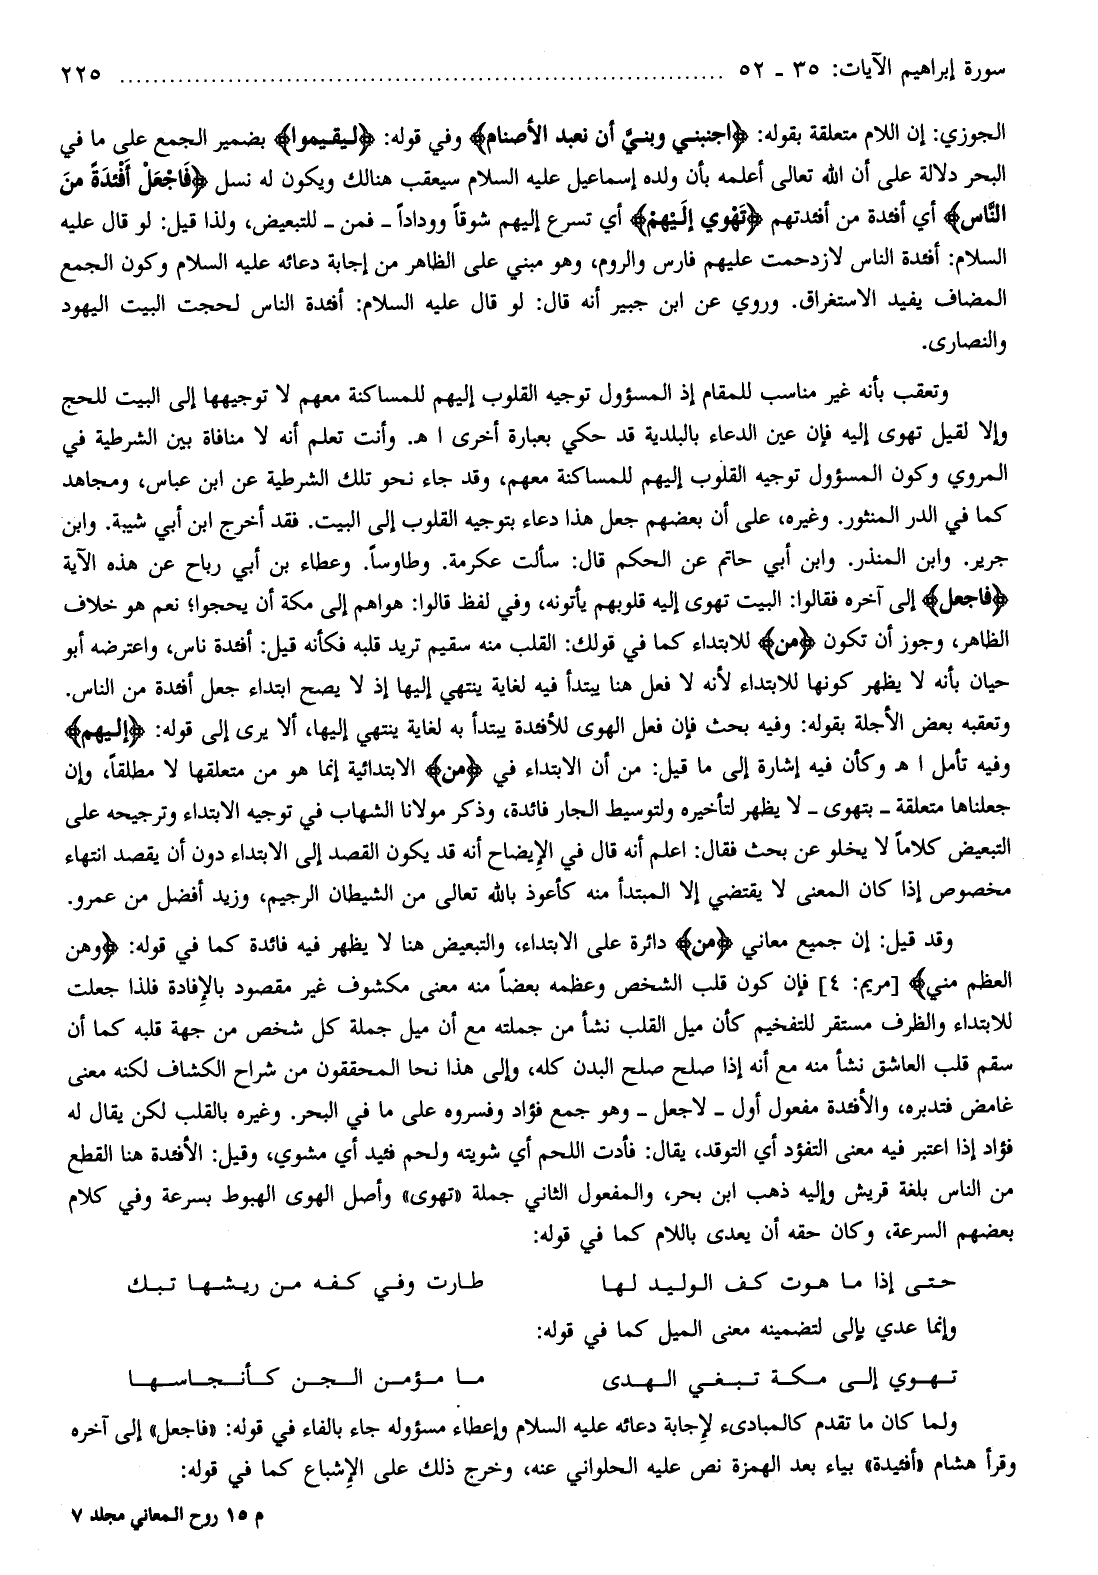 سورة إبراهيم الآيات: ٣٥ ـ ٥٢ ........................................................................ ٢٢٥
الجوزي: إن اللام متعلقة بقوله: ﴿اجنبني وبنيَّ أن نعبد الأصنام﴾ وفي قوله: ﴿ليقيموا﴾ بضمير الجمع على ما في
البحر دلالة على أن الله تعالى أعلمه بأن ولده إسماعيل عليه السلام سيعقب هنالك ويكون له نسل ﴿فَاجْعَلْ أَفْئدَةً منَ
النَّاس﴾ أي أفئدة من أفئدتهم ﴿تَهْوي إلَيْهمْ﴾ أي تسرع إليهم شوقاً ووداداً ـ فمن ـ للتبعيض، ولذا قيل: لو قال عليه
السلام: أفئدة الناس لازدحمت عليهم فارس والروم، وهو مبني على الظاهر من إجابة دعائه عليه السلام وكون الجمع
المضاف يفيد الاستغراق. وروي عن ابن جبير أنه قال: لو قال عليه السلام: أفئدة الناس لحجت البيت اليهود
والنصارى.
وتعقب بأنه غير مناسب للمقام إذ المسؤول توجيه القلوب إليهم للمساكنة معهم لا توجيهها إلى البيت للحج
وإلا لقيل تهوى إليه فإن عين الدعاء بالبلدية قد حكي بعبارة أخرى ا هـ. وأنت تعلم أنه لا منافاة بين الشرطية في
المروي وكون المسؤول توجيه القلوب إليهم للمساكنة معهم، وقد جاء نحو تلك الشرطية عن ابن عباس، ومجاهد
كما في الدر المنثور. وغيره، على أن بعضهم جعل هذا دعاء بتوجيه القلوب إلى البيت. فقد أخرج ابن أبي شيبة. وابن
جرير. وابن المنذر. وابن أبي حاتم عن الحكم قال: سألت عكرمة. وطاوساً. وعطاء بن أبي رباح عن هذه الآية
﴿فاجعل﴾ إلى آخره فقالوا: البيت تهوى إليه قلوبهم يأتونه، وفي لفظ قالوا: هواهم إلى مكة أن يحجوا؛ نعم هو خلاف
الظاهر، وجوز أن تكون ﴿من﴾ للابتداء كما في قولك: القلب منه سقيم تريد قلبه فكأنه قيل: أفئدة ناس، واعترضه أبو
حيان بأنه لا يظهر كونها للابتداء لأنه لا فعل هنا يبتدأ فيه لغاية ينتهي إليها إذ لا يصح ابتداء جعل أفئدة من الناس.
وتعقبه بعض الأجلة بقوله: وفيه بحث فإن فعل الهوى للأفئدة يبتدأ به لغاية ينتهي إليها، ألا يرى إلى قوله: ﴿إليهم﴾
وفيه تأمل ا هـ وكأن فيه إشارة إلى ما قيل: من أن الابتداء في ﴿من﴾ الابتدائية إنما هو من متعلقها لا مطلقاً، وإن
جعلناها متعلقة ـ بتهوى ـ لا يظهر لتأخيره ولتوسيط الجار فائدة، وذكر مولانا الشهاب في توجيه الابتداء وترجيحه على
التبعيض كلاماً لا يخلو عن بحث فقال: اعلم أنه قال في الإيضاح أنه قد يكون القصد إلى الابتداء دون أن يقصد انتهاء
مخصوص إذا كان المعنى لا يقتضي إلا المبتدأ منه كأعوذ بالله تعالى من الشيطان الرجيم، وزيد أفضل من عمرو.
وقد قيل: إن جميع معاني ﴿من﴾ دائرة على الابتداء، والتبعيض هنا لا يظهر فيه فائدة كما في قوله: ﴿وهن
العظم مني﴾ [مريم: ٤] فإن كون قلب الشخص وعظمه بعضاً منه معنى مكشوف غير مقصود بالإفادة فلذا جعلت
للابتداء والظرف مستقر للتفخيم كأن ميل القلب نشأ من جملته مع أن ميل جملة كل شخص من جهة قلبه كما أن
سقم قلب العاشق نشأ منه مع أنه إذا صلح صلح البدن كله، وإلى هذا نحا المحققون من شراح الكشاف لكنه معنى
غامض فتدبره، والأفئدة مفعول أول ـ لاجعل ـ وهو جمع فؤاد وفسروه على ما في البحر. وغيره بالقلب لكن يقال له
فؤاد إذا اعتبر فيه معنى التفؤد أي التوقد، يقال: فأدت اللحم أي شويته ولحم فئيد أي مشوي، وقيل: الأفئدة هنا القطع
من الناس بلغة قريش وإليه ذهب ابن بحر، والمفعول الثاني جملة «تهوى» وأصل الهوى الهبوط بسرعة وفي كلام
بعضهم السرعة، وكان حقه أن يعدى باللام كما في قوله:
حتى إذا ما هوت كف الوليد لها طارت وفي كفه من ريشها تبك
وإنما عدي بإلى لتضمينه معنى الميل كما في قوله:
تهوي إلى مكة تبغي الهدى ما مؤمن الجن كأنجاسها
ولما كان ما تقدم كالمبادىء لإجابة دعائه عليه السلام وإعطاء مسؤوله جاء بالفاء في قوله: «فاجعل» إلى آخره
وقرأ هشام «أفئيدة» بياء بعد الهمزة نص عليه الحلواني عنه، وخرج ذلك على الإشباع كما في قوله:
م ١٥ روح المعاني مجلد ٧